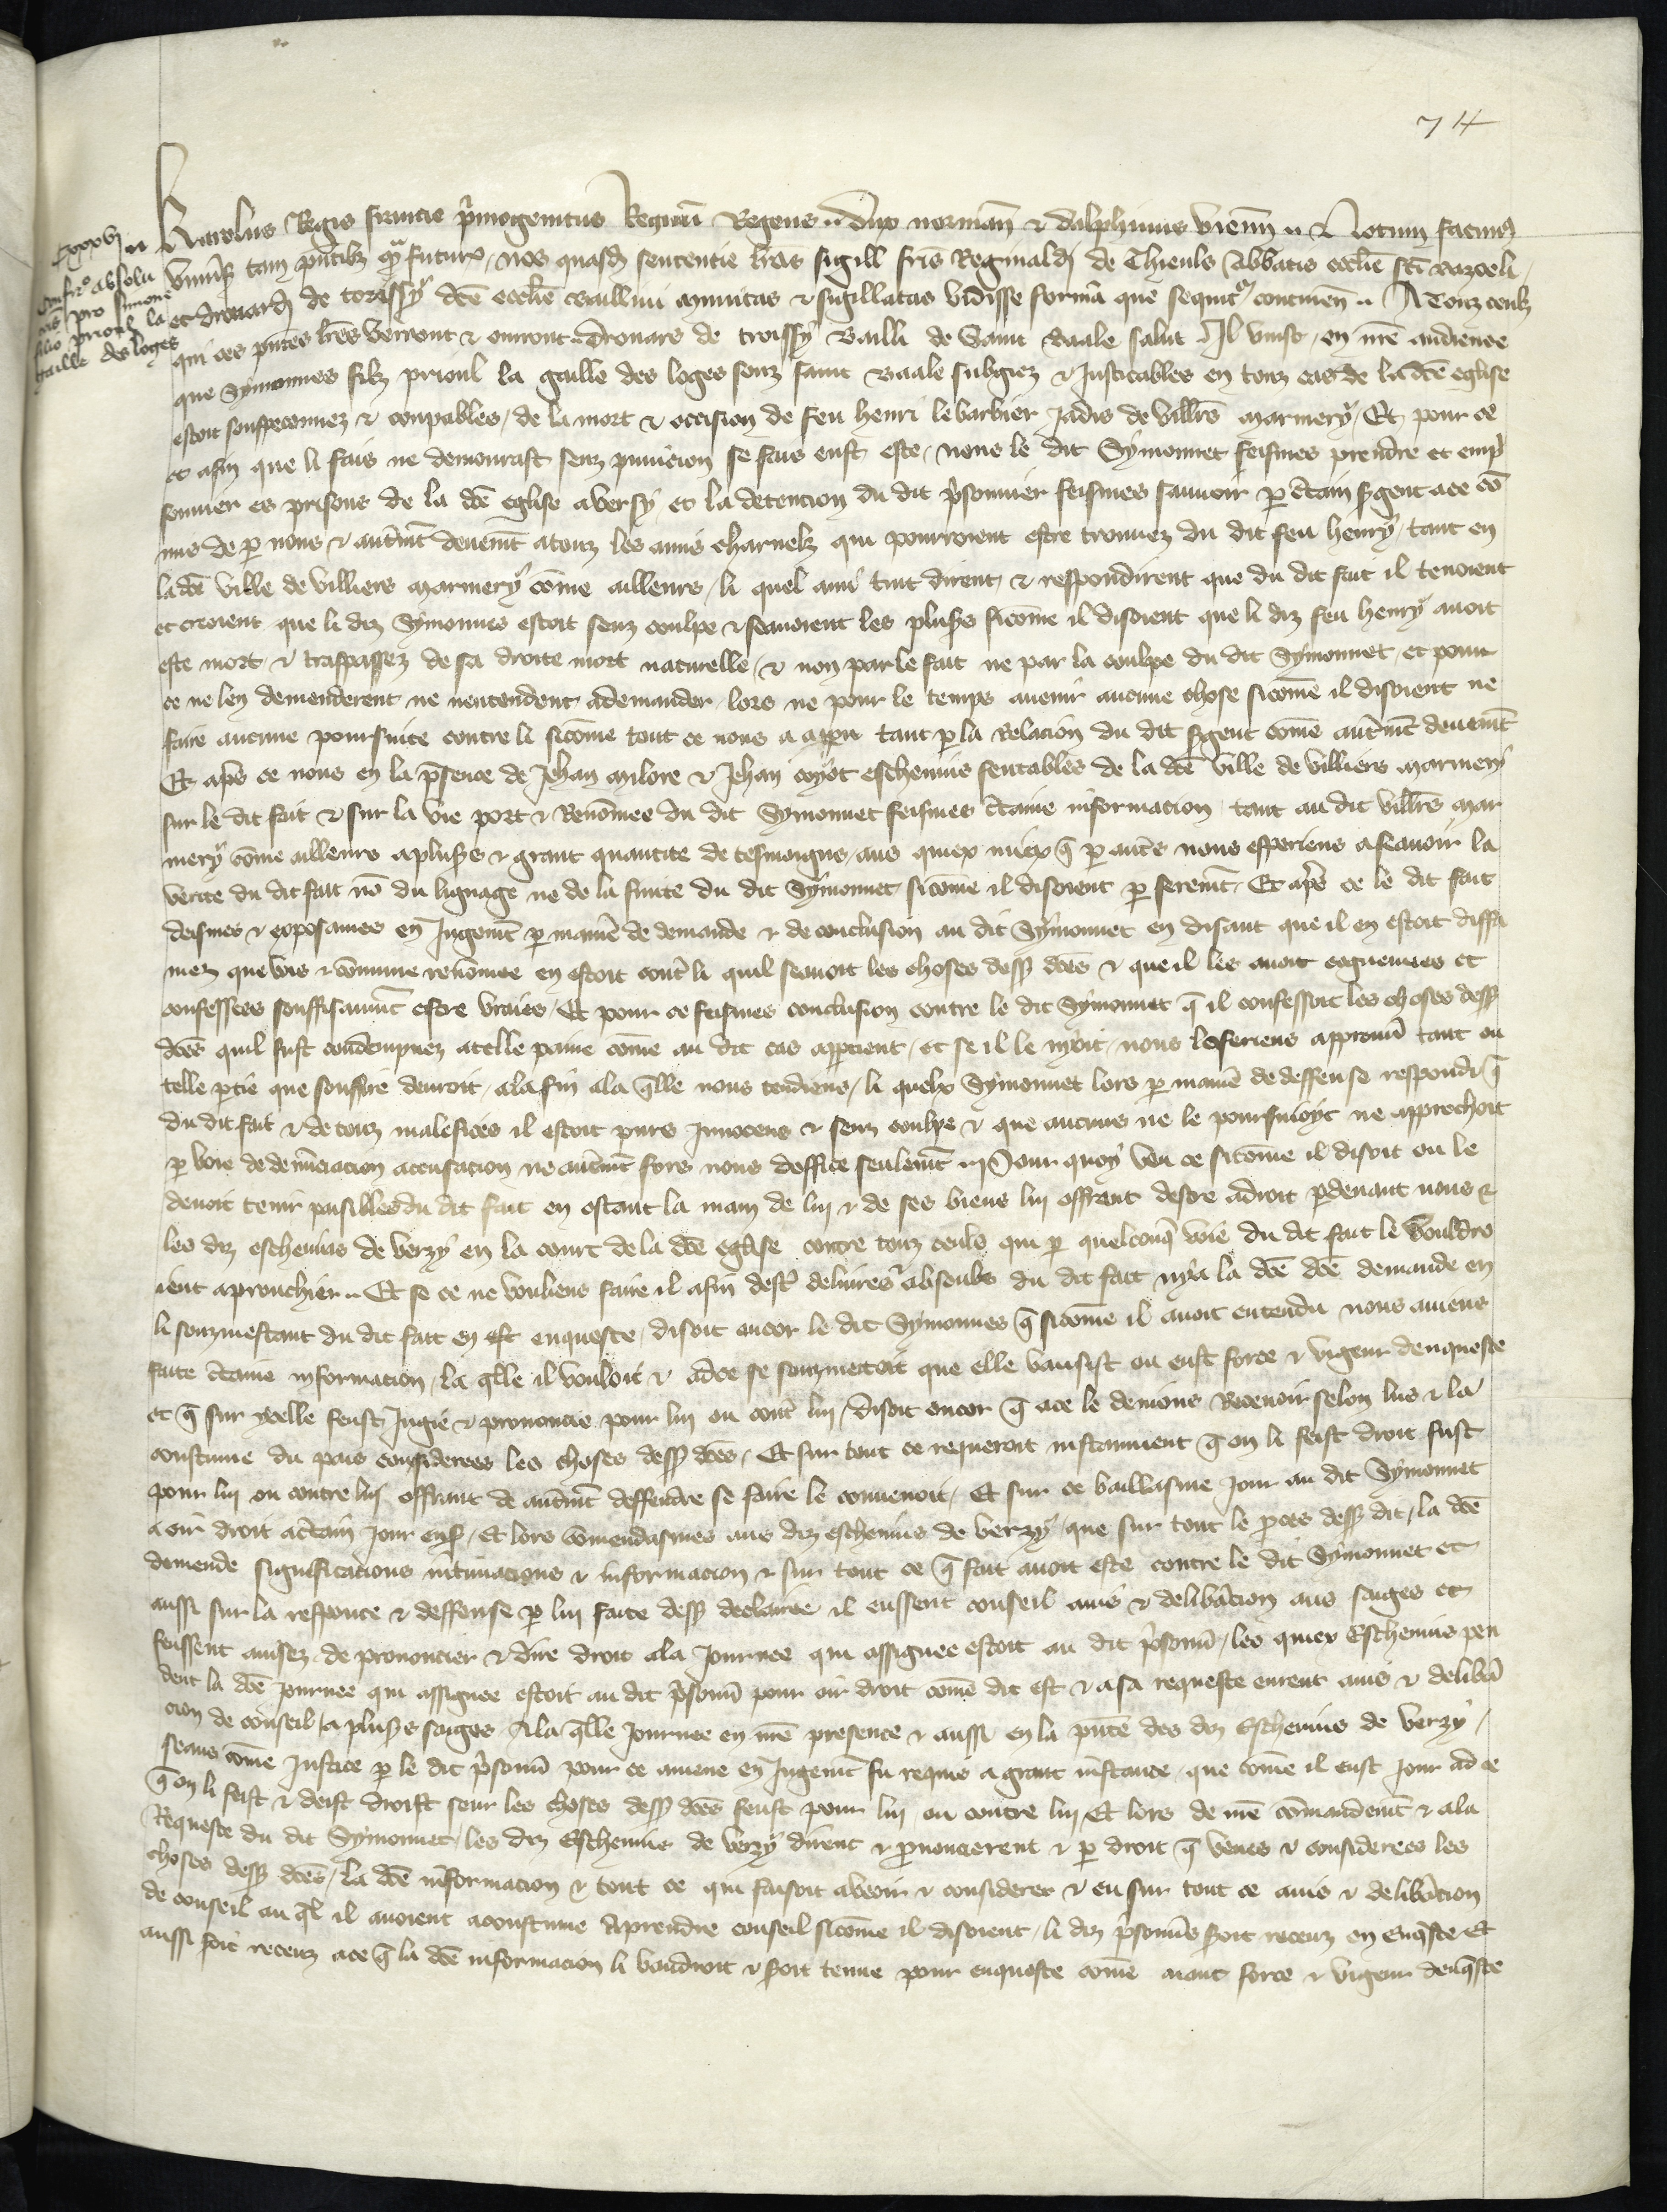 74
Cxxxvi
Confirº absolu
cõis pro simone
filio prioul la
gaille des loges
Karolus Regis francie p̃mogenitus Regnũ Regens .. dux normañ & dalphinus vieñn .. Notum facimꝰ
vniũsis tam pñtibꝫ qᵃ̃ futuris, nos quasdã sentencie lr̃as sigill fr̃is Reginaldi de Thieuls Abb̃atis eccl̃ie sc̃i basoli
et drouardi de torissy dc̃e eccl̃ie baillivi munitas & sigillatas vidisse formã que sequitᷣ continen̄ .. A Touz ceulz
qui ces pñtes lr̃es verront & ourront. drouars de troissy bailli de Saint baale salut Il vinst, en nr̃e audience
que Symonnes filz prioul la gaille des loges souz saint Baale subgiez & Justicables en touz cas de la dc̃e eglise
estoit souspeconnez & coupables, de la mort & occision de feu henri lebarbier Jadis de vill̃rs marmery, Et pour ce
et afin que li fais ne demourast senz punicion se fais eust este, nous le dit Symonnet feismes prendre et enp̃
sonner es prisons de la dc̃e eglise a versy et la detencion du dit p̃sonnier feismes sauuoir ꝑ c̃tain s̃gent ace cõ
mis de ꝑ nous & autrem̃t deuem̃t atouz les amis charnelz qui pourroient estre trouuez du dit feu henry, tant en
la dc̃e ville de villiers marmery cõme ailleurs, li quel ami tuit dirent & respondirent que du dit fait il tenoient
et creoient que li diz Symonnes estoit senz coulpe & scauoient les plus̃rs sicõme il disoient que li diz feu henry auoit
este mort & traspassez de sa droite mort naturelle, & non par le fait ne par la coulpe du dit Symonnet, et pour
ce ne len demenderent ne nentendent ademander, lors ne pour le temps auenir aucune chose sicõme il disoient ne
faire aucune poursuite contre li sicõme tout ce nous a apparu tant ꝑ la Relacion du dit s̃gent cõme autrem̃t deuem̃t
Et ap̃s ce nous en la p̃sence de Jehan milore & Jehan coyot escheuins sentables de la dc̃e ville de villiers marmery
sur le dit fait & sur la vie port & Renõmee du dit Symonnet feismes c̃taine informacion, tant au dit vill̃rs mar
mery cõme ailleurs aplus̃rs & grant quantite de tesmoigns, aus quiex miex q̃ ꝑ autr̃s nous esperiens ascauoir la
verite du dit fait nõ du lignage ne de la suite du dit Symonnet sicõme il disoient ꝑ serem̃t, Et apr̃s ce le dit fait
deismes & exposames en Jugem̃t ꝑ manier̃ de demande & de conclusion au dit Symonnet en disant que il en estoit diffa
mez que vois & cõmune renõmee en estoit contr̃ li quil scauoit les choses dess᷑ dc̃es & que il les auoit cogneuues et
confessees souffisanm̃t estre vraies, Et pour ce feismes conclusion contre le dit Symonnet q̃ il confessoit les choses dess᷑
dc̃es quil fust condempnez atelle paine cõme au dit cas appartient, et se il le nyoit, nous loferiens approuuer̃ tant ou
telle ꝑtie que souffire deuroit, ala fin ala q̃lle nous tendiens, li quelx Symonnet lors ꝑ manier̃ de deffense respondi q̃
du dit fait & de touz malefices il estoit purs Innocens & senz coulpe & que aucuns ne le poursuioyt ne approchoit
ꝑ voie de denũciacion accusacion ne autrem̃t fors nous doffice seulem̃t .. Pour quoy veu ce sicõme il disoit on le
deuoit tenir paisibles du dit fait en ostant la main de lui & de ses biens lui offrant destre adroit ꝑdeuant nous &
les diz escheuins de verzy en la court de la dc̃e eglise contre touz ceuls qui ꝑ quelconq̃ voie du dit fait le vouldro
ient aprouchier .. Et se ce ne vouliens faire il afin destr̃ deliures & absoubs du dit fait nya la dc̃e dc̃e demande en
li souzmestant du dit fait en est enqueste, disoit encor le dit Symonnes q̃ sicõme il auoit entendu nous auiens
faite c̃taine informacion, la q̃lle il vouloit & adce se souzmettoit que elle vausist ou eust force & vigeur denqueste
et q̃ sur ycelle feust Jugie & prononcie pour lui ou contr̃ lui, disoit encor q̃ ace le deuions Receuoir selon lus & la
coustume du pais considerees les choses dess᷑ dc̃es, Et sur tout ce requeroit instanment q̃ on li feist droit fust
pour lui ou contre lui offrant de autrem̃t deffendre se faire le conuenoit, Et sur ce baillasme Jour au dit Symonnet
a oir droit ac̃tain Jour ens᷑, Et lors cõmendasmes aus diz escheuins de verzy, que sur tout le ꝓces dess᷑ dit, la dc̃e
demende significacions intimacions & informacion & sur tout ce q̃ fait auoit este contre le dit Symonnet et
aussi sur la response & deffense ꝑ lui faite dess᷑ declairee il eussent conseil auis & delib̃acion aus saiges et
feussent auisez de prononcier & dire droit ala Journee qui assignee estoit au dit p̃sonñ, les quiex Escheuins pen
dent la dc̃e Journee qui assignee estoit au dit p̃sonñ pour oir droit cõme dit est & asa requeste eurent auis & delib̃a
cion de conseil a plus̃rs saiges Ala q̃lle Journee en nr̃e presence & aussi en la pñce des diz Escheuins de verzy,
seans cõme Justice ꝑ le dit p̃sonñ pour ce amene en Jugem̃t fu requis a grant instance, que cõme il eust Jour ad ce
q̃ on li feist & deist droit sour les choses dess᷑ dc̃es feust pour lui ou contre lui Et lors de nr̃e cõmandem̃t & ala
Requeste du dit Symonnet, les diz Escheuins de verzy dirent & ꝓnoncerent & ꝑ droit q̃ veues & considerees les
choses dess᷑ dc̃es, la dc̃e informacion & tout ce qui faisoit aveoir & considerer & eu sur tout ce auis & delib̃acion
de conseil au q̃l il auoient acoustume Aprendre conseil sicõme il disoient, li diz p̃sonñs s̃oit receuz en Enq̃ste Et
aussi s̃oit receuz ace q̃ la dc̃e informacion li vaudroit & s̃oit tenue pour enqueste cõme aiant force & vigeur denq̃ste